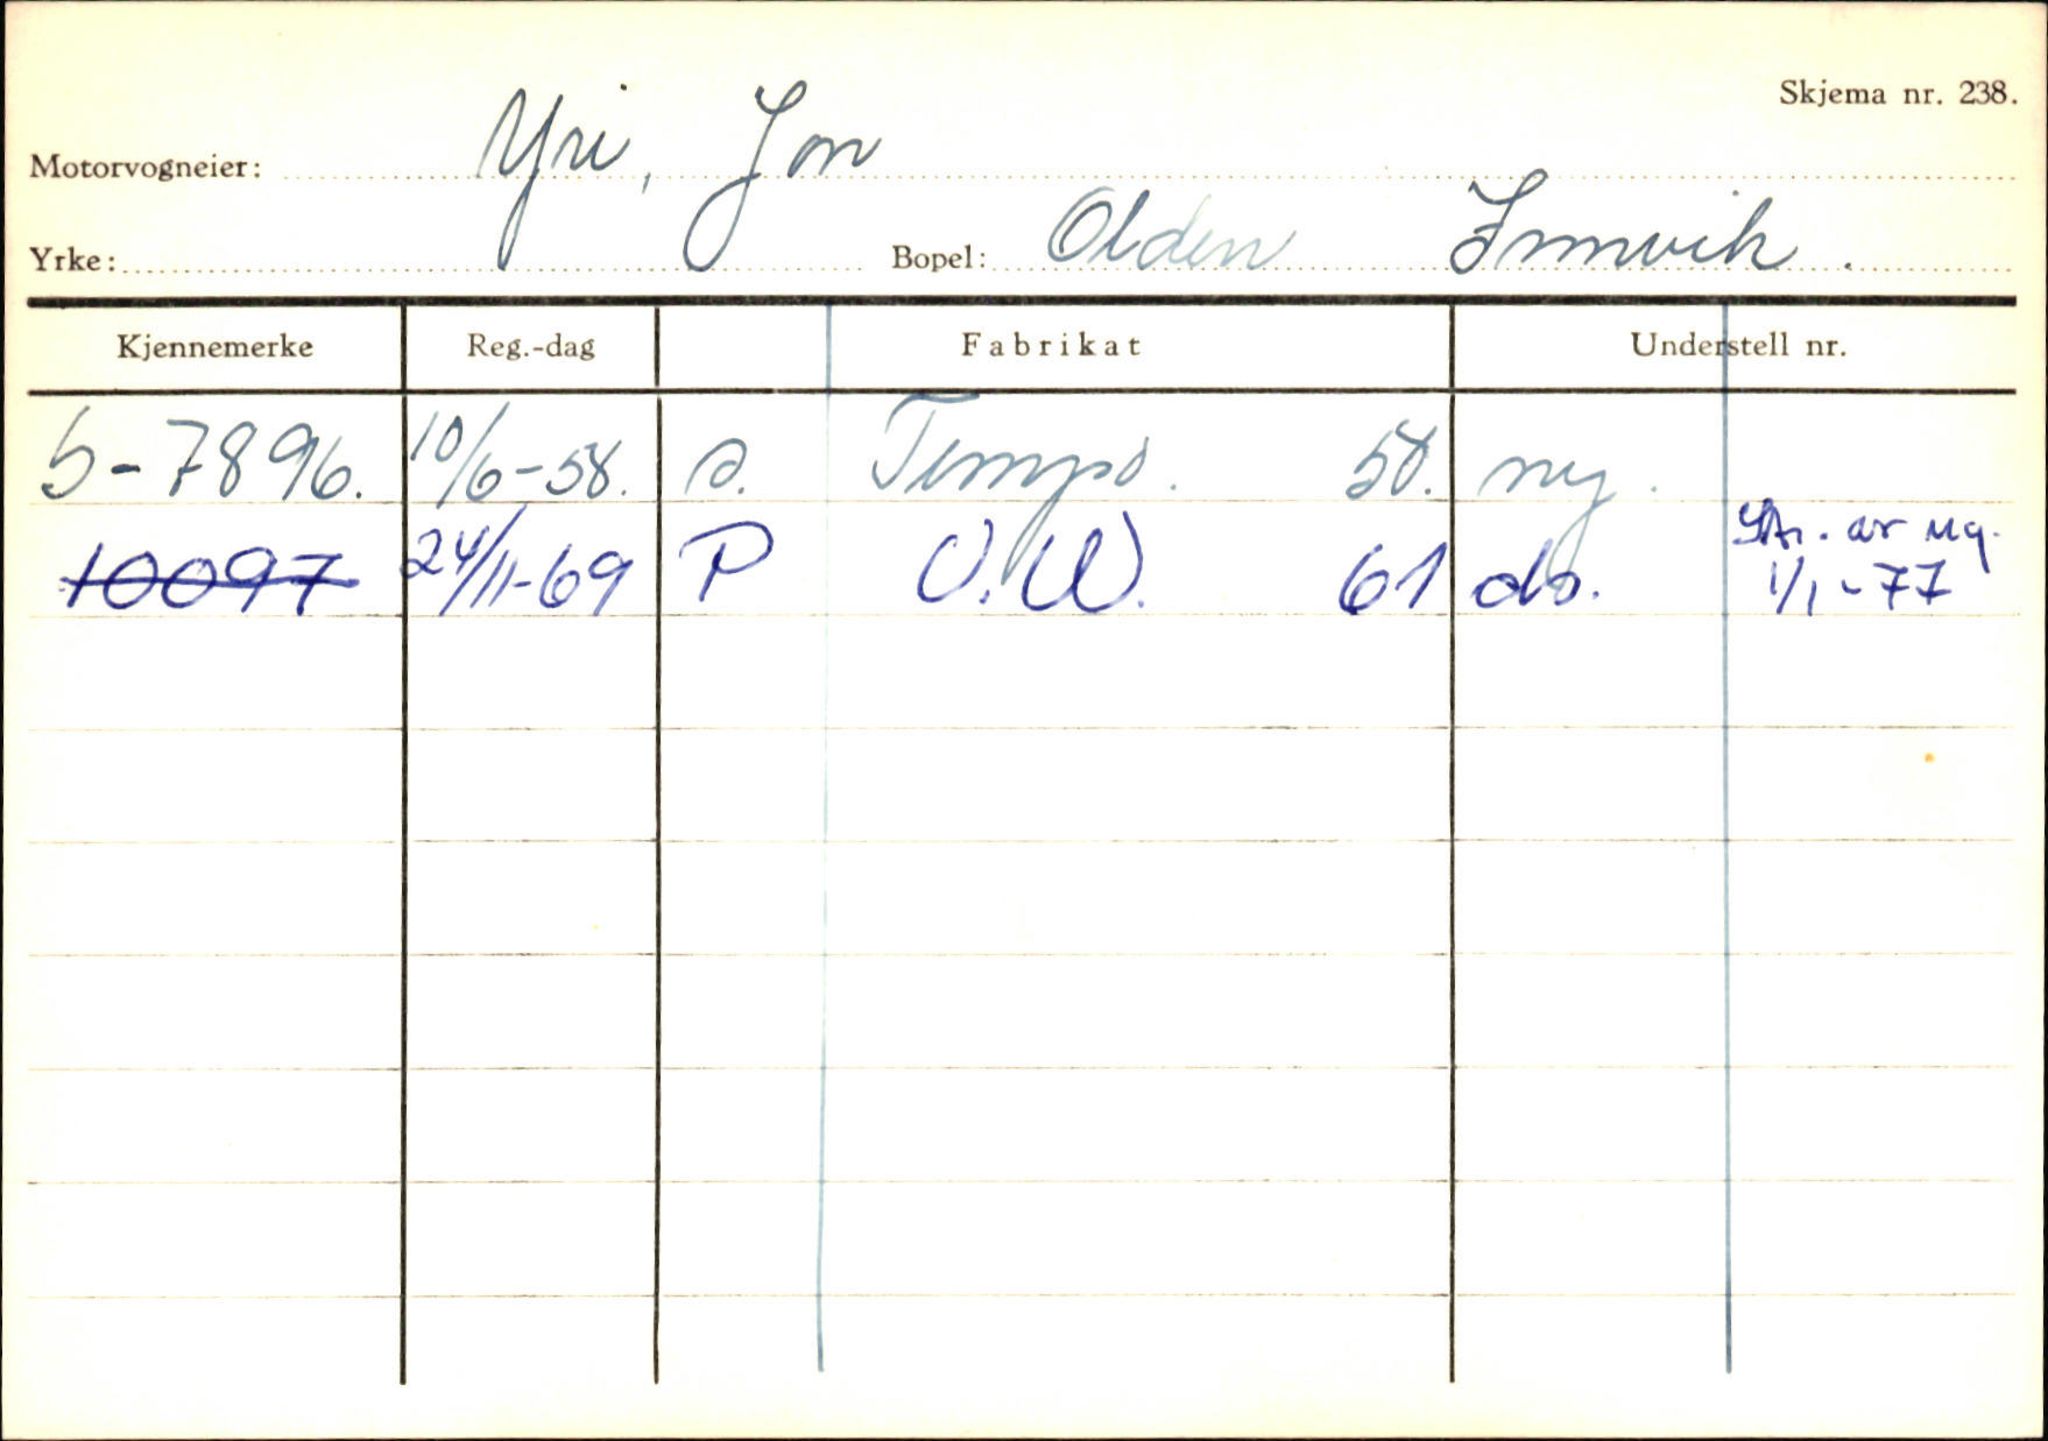 Skjema nr. 238.
Motorvogneier: Yri, Jon
Yrke: Bopel: Olden Innvik.
Kjennemerke Reg.-dag Fabrikat Understell nr.
S-7896. 10/6-58. Tempo. 58. ny.
10097 24/11-69 P V.W. 61 do. Str. av reg.
1/1-77